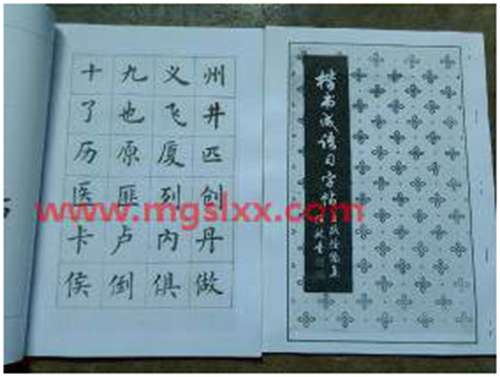 十九义州
了也飞井
历原厦匹
医匪列创
www.mgslxx.com
卡卢内丹
侯倒俱做
楷书成语习字帖